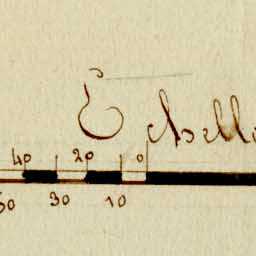 Echelle
40 20 0
50 30 10